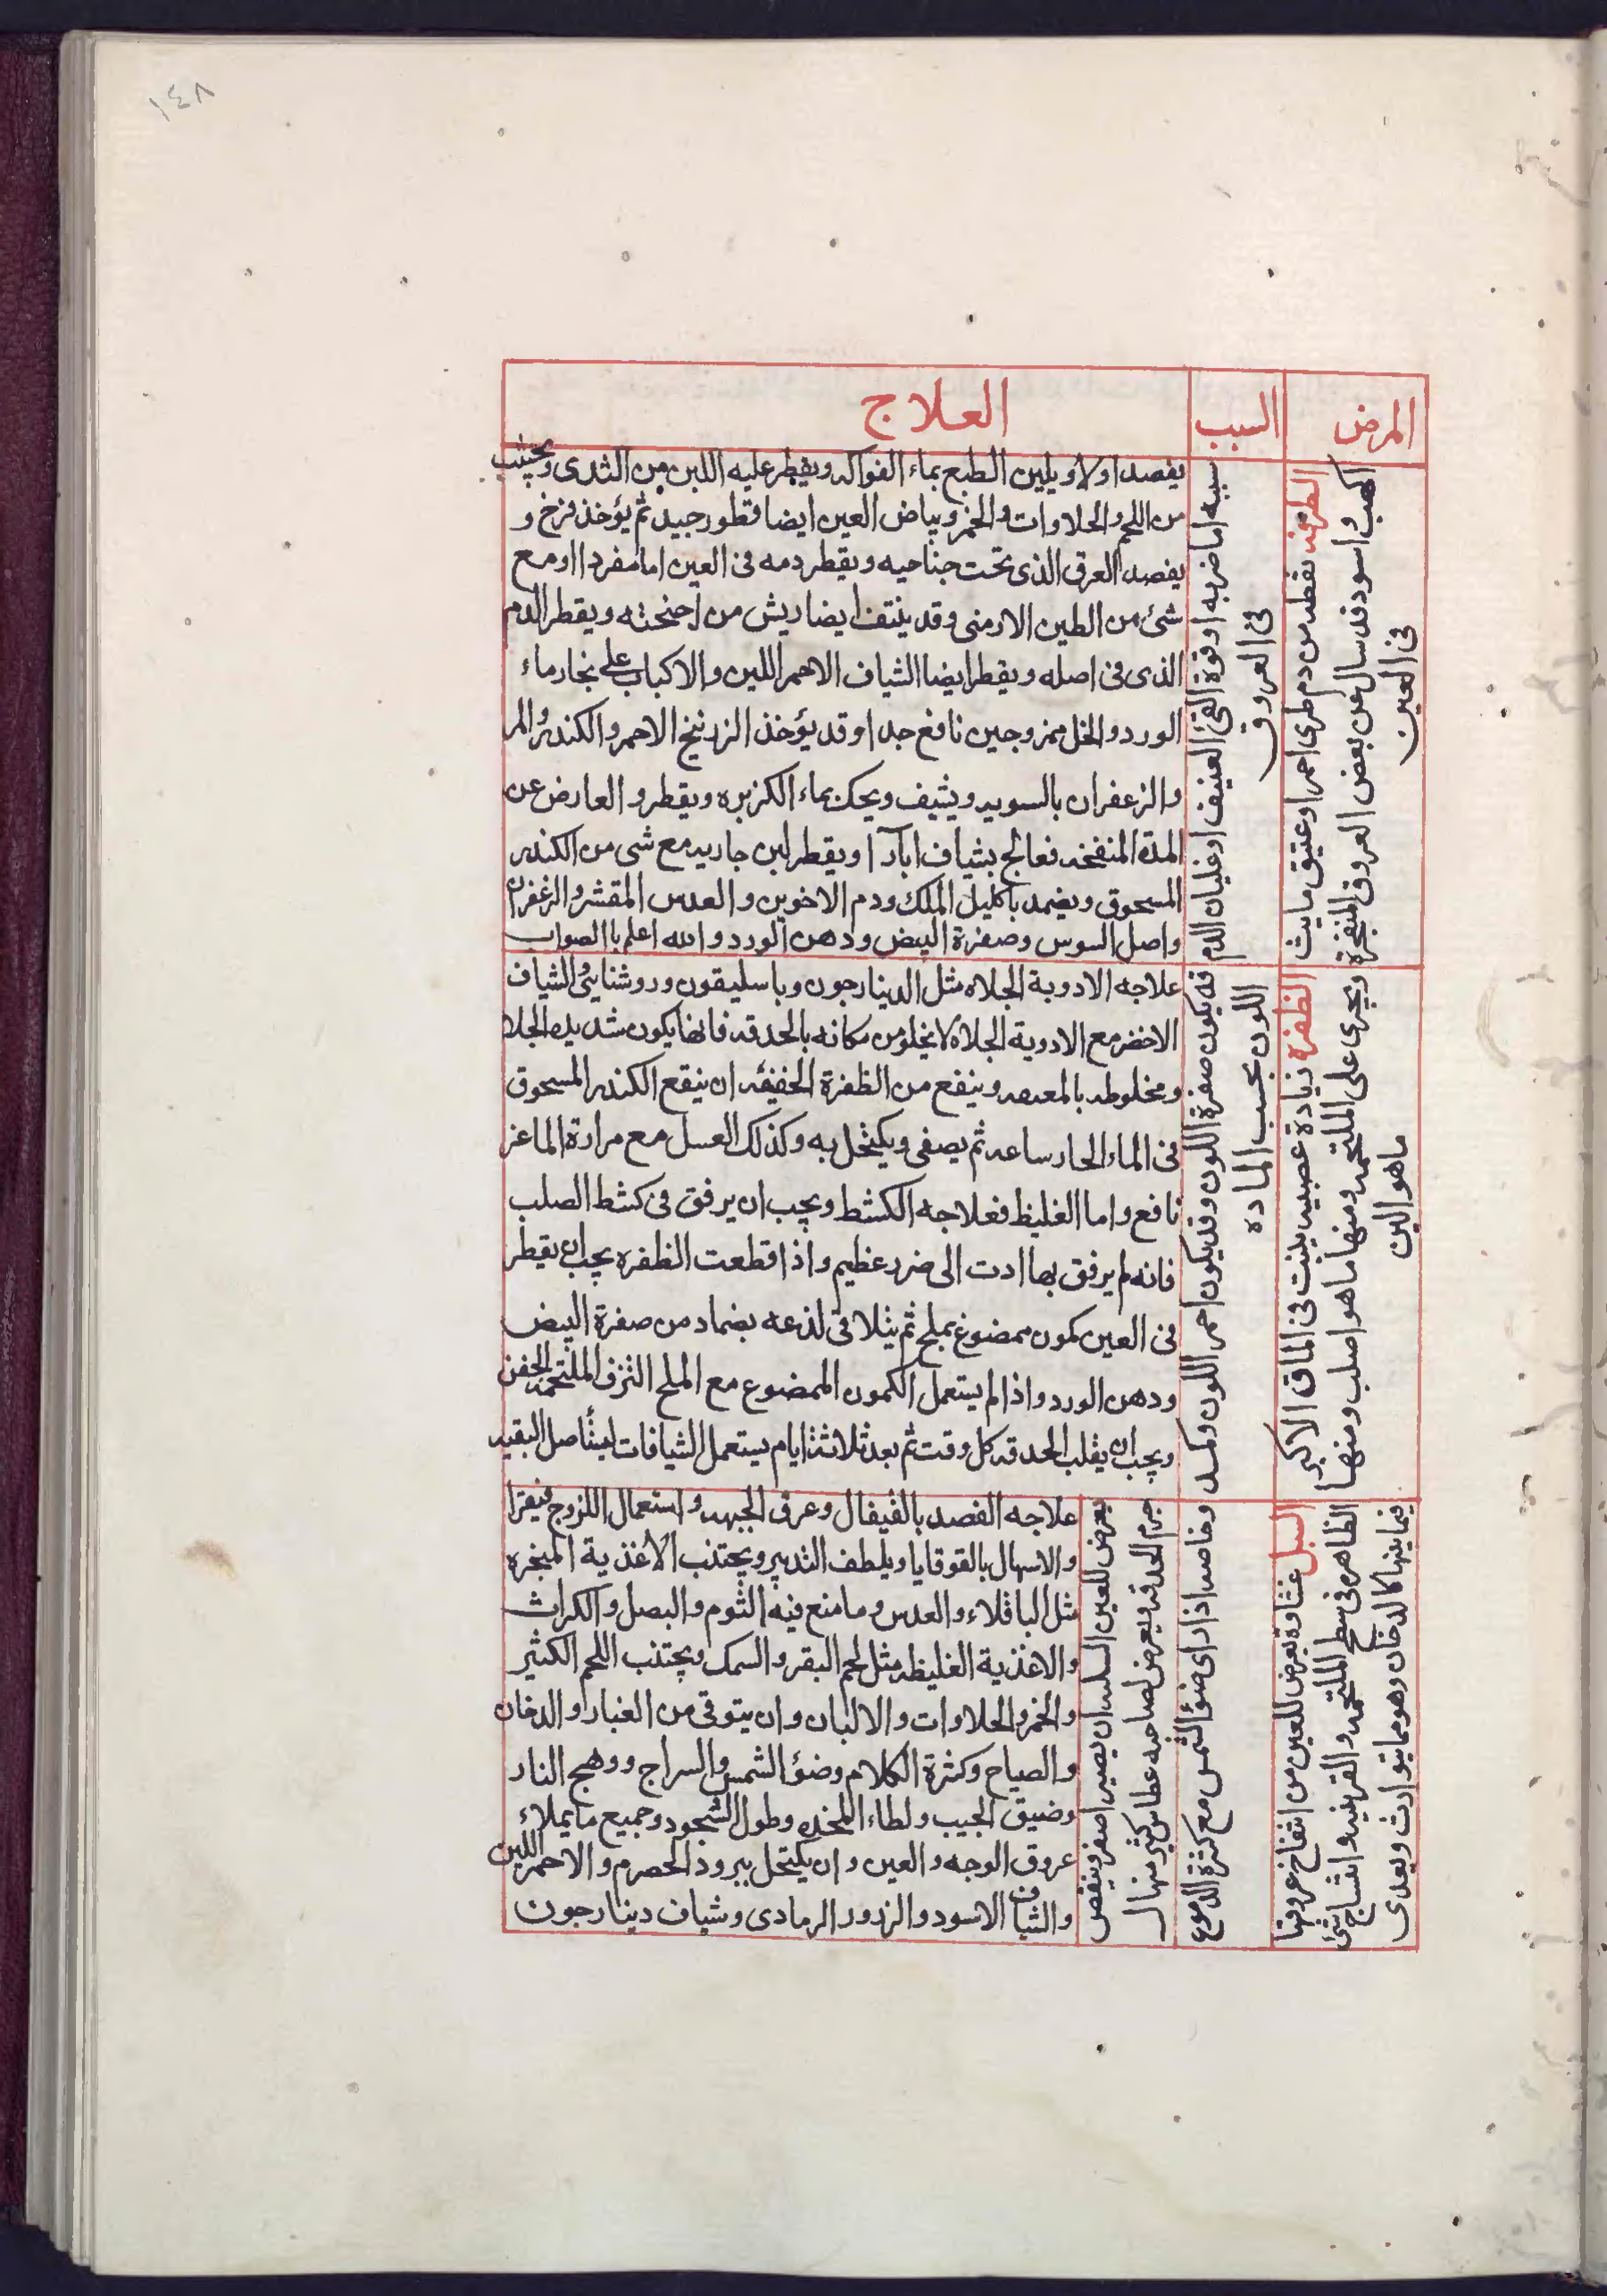 ١٤٨
المرض
السبب
العلاج
الطرفه نقطه من دم طرى احمر او عتيق مايت
اكهب واسود قد سال عن بعض العروق المنفجرة
فى العين
سببه اما ضربه او قوة القئ العنيف او غليان الدم
فى العروق
يفصد اولا ويلين الطبع بماء الفواكه ويقطر عليه اللبن من الثدى ويجتنب
من اللحم والحلاوات والخمر وبياض العين ايضا قطور جيد ثم يؤخذ فرخ و
يفصد العرق الذى تحت جناحيه ويقطر دمه فى العين اما مفردا او مع
شئ من الطين الارمنى وقد ينتف ايضا ريش من اجنحته ويقطر الدم
الذى فى اصله ويقطر ايضا الشياف الاحمر اللين والاكباب على بخار ماء
الورد والخل ممزوجين نافع جدا وقد يؤخذ الزرنيخ الاحمر والكندر والمر
والزعفران بالسويه ويشيف ويحك بماء الكزبره ويقطر والعارض عن
المدة المنفخه فعالج بشياف ابار او يقطر لبن جاريه مع شى من الكندر
المسحوق ويضمد باكليل الملك ودم الاخوين والعدس المقشر والزعفران
واصل السوس وصفرة البيض ودهن الورد والله اعلم باالصواب
الظفره زيادة عصبيه ينبت فى الماق الاكبر
ويجرى على الملتحمه ومنها ما هو اصلب ومنها
ماهو الين
قد يكون صفرة اللون وقد يكون احمر اللون وكمد
اللون بحسب الماده
علاجه الادوية الجلاه مثل الدينارجون وباسليقون وروشنايئ والشياف
الاخضر مع الادوية الجلاه لا يخلو من مكانه بالحدقه فانها يكون شديدة الجلا
ومخلوطه بالمعده وينفع من الظفرة الخفيفه ان ينقع الكندر المسحوق
فى الماء الحار ساعه ثم يصفى ويكتحل به وكذلك العسل مع مرارة الماعز
نافع واما الغليظ فعلاجه الكشط ويجب ان يرفق فى كشط الصلب
فانه لم يرفق بها ادت الى ضرر عظيم واذا قطعت الظفره يجب ان يقطر
فى العين كمون ممضوغ بملح ثم يتلافى لذعه بضماد من صفرة البيض
ودهن الورد واذا لم يستعمل الكمون الممضوغ مع الملح التزق الملتحمه الجفن
ويجب ان يقلب الحدقه كل وقت ثم بعد ثلاثة ايام يستعمل الشيافات ليستأصل البقيه
السبل غشاوة تعرض للعين من انتفاخ عروقها
الظاهره فى سطح الملتحمه والقرنيه وانتساج شئ
فيما بينها كالدخان وهو مما يتوارث ويعدى
وخاصه اذا راى ضؤ الشمس مع كثرة الدموع
جرم الحدقه ويعرض لصاحبه عطاس كثير منها ل
تعرض للعين السبله ان يصير اصغر وينقص
علاجه الفصد بالقيفال وعرق الجبهه واستعمال اللزوج فيقرا
والاسهال بالقوقايا ويلطف التدبير ويجتنب الاغذية المبخره
مثل الباقلاء والعدس وما منع فيه الثوم والبصل والكراث
والاغذية الغليظه مثل لحم البقر والسمك ويجتنب اللحم الكثير
والخمر والحلاوات والالبان وان يتوقى من الغبار والدخان
والصياح وكثرة الكلام وضؤ الشمس والسراج ووهج النار
وضيق الجيب ولطاء المخده وطول السجود وجميع ما يملاء
عروق الوجه والعين وان يكتحل ببرود الحصرم والاحمر اللين
والشياف الاسود والزرور الرمادى وشياف دينارجون